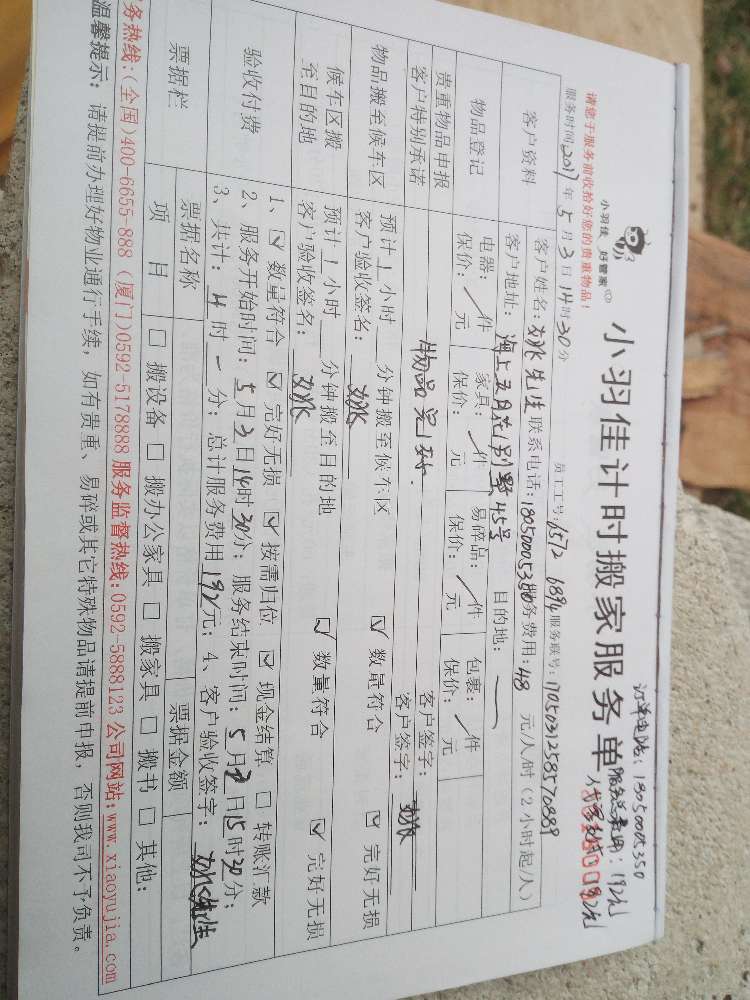 小羽佳 好管家
小羽佳计时搬家服务单
订单电话：18050005350
服务总费用：192元
192元
请您于服务前收拾好您的贵重物品！
服务时间2017年5月3日14时30分
员工工号：1572 6894 服务联号：1705031258570889
客户资料
客户姓名：先生 联系电话：18050005350 服务费用：48 元/人/时（2小时起/人）
客户地址：海上五月花1别墅45号 目的地：—
物品登记
电器：／件 家具：／件 易碎品：／件 包裹：／件
保价：元 保价：元 保价：元 保价：元
贵重物品申报 客户签字：
客户特别承诺 物品完好. 客户签字：
物品搬至候车区
预计1小时 分钟搬至候车区 ☑ 数量符合 ☑ 完好无损
客户验收签名：
候车区搬至目的地
预计1小时 分钟搬至目的地 ☑ 数量符合 ☑ 完好无损
客户验收签名：
验收付费
1、☑ 数量符合 ☑ 完好无损 ☑ 按需归位 ☑ 现金结算 □ 转账汇款
2、服务开始时间：5月3日14时30分；服务结束时间：5月日15时30分；
3、共计：4时一分；总计服务费用192元；4、客户验收签字：
票据栏
票据名称 票据金额
项目 □ 搬设备 □ 搬办公家具 □ 搬家具 □ 搬书 □ 其他：
务热线：(全国)400-6655-888 (厦门)0592-5178888 服务监督热线：0592-5888123 公司网站：www.xiaoyujia.com
温馨提示：请提前办理好物业通行手续，如有贵重、易碎或其它特殊物品请提前申报，否则我司不予负责。